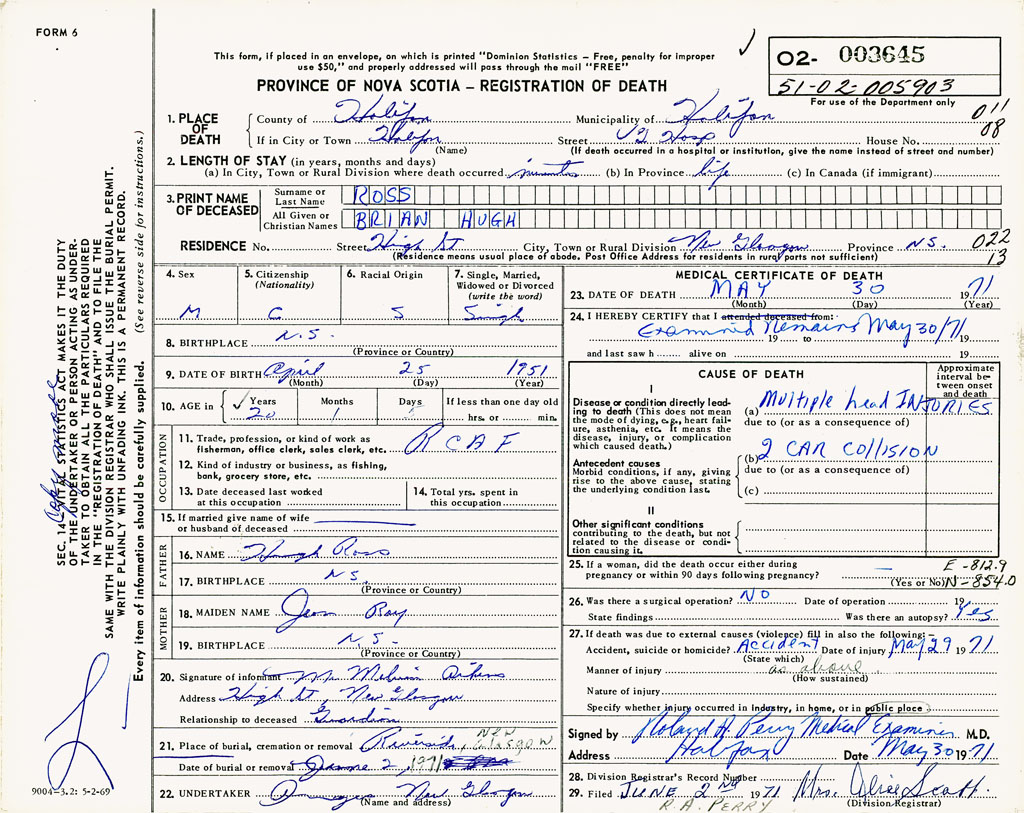 FORM 6
This form, if placed in an envelope, on which is printed "Dominion Statistics – Free, penalty for improper
use $50," and properly addressed will pass through the mail "FREE"
PROVINCE OF NOVA SCOTIA – REGISTRATION OF DEATH
02- 003645
51-02-005903
For use of the Department only
1. PLACE OF DEATH
County of Halifax Municipality of Halifax 011
If in City or Town Halifax Street VG Hosp House No. 08
(Name) (If death occurred in a hospital or institution, give the name instead of street and number)
2. LENGTH OF STAY (in years, months and days)
(a) In City, Town or Rural Division where death occurred minutes (b) In Province life (c) In Canada (if immigrant)
3. PRINT NAME OF DECEASED
Surname or Last Name ROSS
All Given or Christian Names BRIAN HUGH
RESIDENCE No. Street High St City, Town or Rural Division New Glasgow Province N.S. 022
(Residence means usual place of abode. Post Office Address for residents in rural parts not sufficient) 13
4. Sex
M
5. Citizenship
(Nationality)
C
6. Racial Origin
S
7. Single, Married,
Widowed or Divorced
(write the word)
Single
8. BIRTHPLACE N.S.
(Province or Country)
9. DATE OF BIRTH April 25 1951
(Month) (Day) (Year)
10. AGE in ✓ Years Months Days If less than one day old
20 1 5 hrs. or min.
OCCUPATION
11. Trade, profession, or kind of work as
fisherman, office clerk, sales clerk, etc. RCAF
12. Kind of industry or business, as fishing,
bank, grocery store, etc.
13. Date deceased last worked
at this occupation
14. Total yrs. spent in
this occupation
15. If married give name of wife
or husband of deceased
FATHER
16. NAME Hugh Ross
17. BIRTHPLACE N.S.
(Province or Country)
MOTHER
18. MAIDEN NAME Jean Ray
19. BIRTHPLACE N.S.
(Province or Country)
20. Signature of informant Mr. Melvin
Address High St, New Glasgow
Relationship to deceased Guardian
21. Place of burial, cremation or removal Riverside, NEW GLASGOW
Date of burial or removal June 2, 1971
22. UNDERTAKER New Glasgow
(Name and address)
MEDICAL CERTIFICATE OF DEATH
23. DATE OF DEATH MAY 30 1971
(Month) (Day) (Year)
24. I HEREBY CERTIFY that I attended deceased from:
Examined Remains May 30/71
19 to 19
and last saw h alive on 19
CAUSE OF DEATH
Approximate
interval be-
tween onset
and death
I
Disease or condition directly lead-
ing to death (This does not mean
the mode of dying, e.g., heart fail-
ure, asthenia, etc. It means the
disease, injury, or complication
which caused death.)
(a) Multiple head INJURIES
due to (or as a consequence of)
Antecedent causes
Morbid conditions, if any, giving
rise to the above cause, stating
the underlying condition last.
(b) 2 CAR COLLISION
due to (or as a consequence of)
(c)
II
Other significant conditions
contributing to the death, but not
related to the disease or condi-
tion causing it.
25. If a woman, did the death occur either during E-812.9
pregnancy or within 90 days following pregnancy? — (Yes or No) N-854.0
26. Was there a surgical operation? NO Date of operation 19
State findings Was there an autopsy? Yes
27. If death was due to external causes (violence) fill in also the following:–
Accident, suicide or homicide? Accident Date of injury May 29 1971
(State which)
Manner of injury as above
(How sustained)
Nature of injury
Specify whether injury occurred in industry, in home, or in public place
Signed by Roland H Perry Medical Examiner M.D.
Address Halifax Date May 30 1971
28. Division Registrar's Record Number
29. Filed JUNE 2nd 1971 Mrs. Alice Scott
R.A. PERRY (Division Registrar)
SEC. 14–VITAL STATISTICS ACT MAKES IT THE DUTY
OF THE UNDERTAKER OR PERSON ACTING AS UNDER-
TAKER TO OBTAIN ALL THE PARTICULARS REQUIRED
IN THE "REGISTRATION OF DEATH" AND TO FILE THE
SAME WITH THE DIVISION REGISTRAR WHO SHALL ISSUE THE BURIAL PERMIT.
WRITE PLAINLY WITH UNFADING INK. THIS IS A PERMANENT RECORD.
Every item of information should be carefully supplied. (See reverse side for instructions.)
9004-3.2: 5-2-69